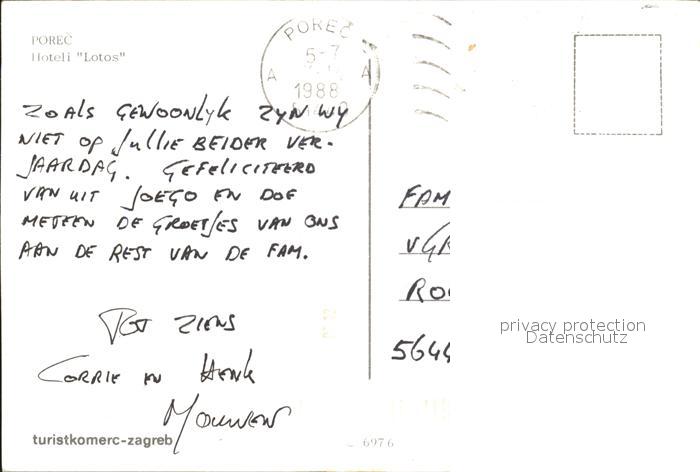 POREČ
Hoteli "Lotos"
POREČ
5-7
A A
1988
ZOALS GEWOONLYK ZYN WY
NIET OP JULLIE BEIDER VER-
JAARDAG. GEFELICITEERD
VAN UIT JOEGO EN DOE
METEEN DE GROETJES VAN ONS
AAN DE REST VAN DE FAM.
TOT ZIENS
CORRIE EN HENK
MOUWEN
FAM
5644
privacy protection
Datenschutz
turistkomerc-zagreb
6976